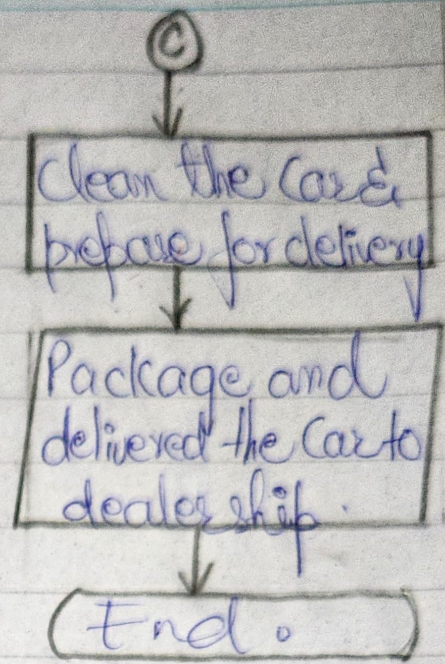 C
Clean the Car &
prepare for delivery
Package and
delivered the Car to
dealership.
End.